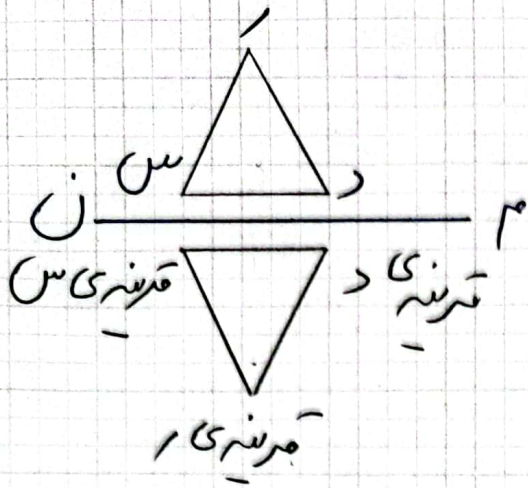 ر
س د
ن م
قرینه‌ی س قرینه‌ی د
قرینه‌ی ر